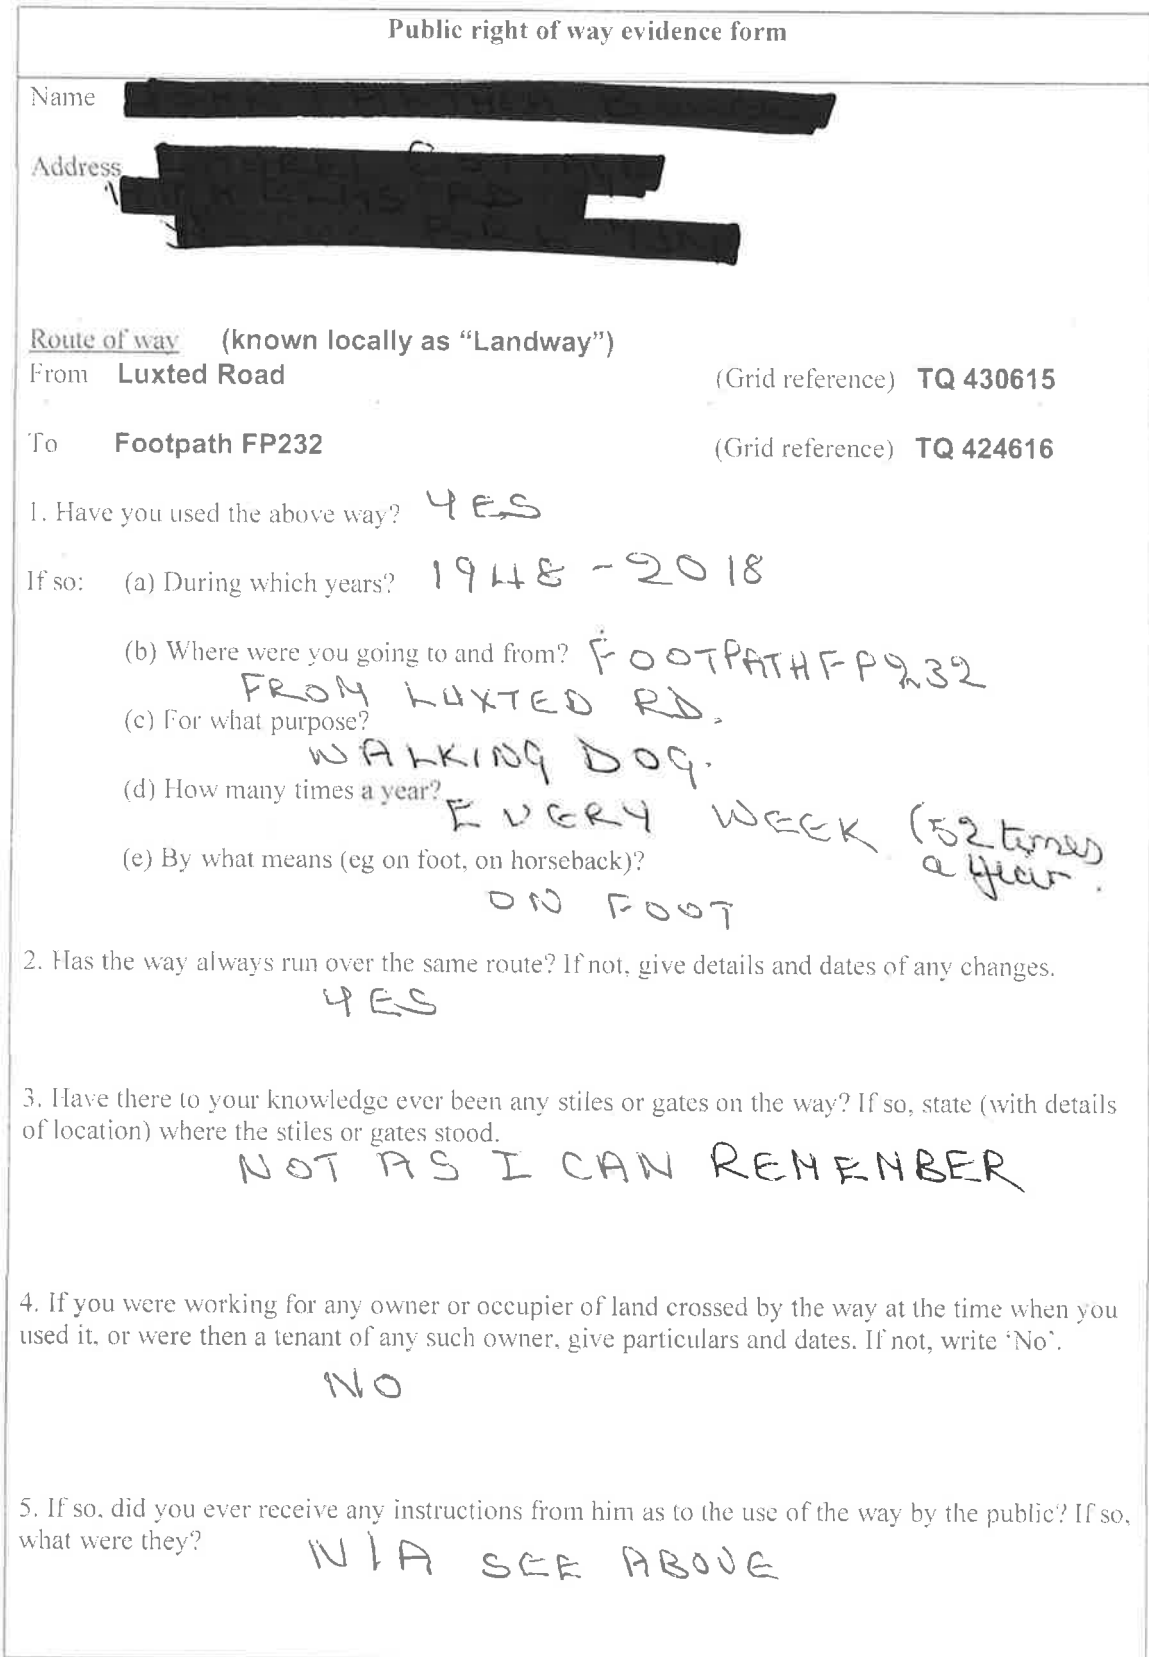 Public right of way evidence form
Name
Address
Route of way (known locally as “Landway”)
From Luxted Road (Grid reference) TQ 430615
To Footpath FP232 (Grid reference) TQ 424616
1. Have you used the above way? YES
If so: (a) During which years? 1948 - 2018
(b) Where were you going to and from? FOOTPATH FP232
FROM LUXTED RD.
(c) For what purpose?
WALKING DOG.
(d) How many times a year? EVERY WEEK (52 times
a year.
(e) By what means (eg on foot, on horseback)?
ON FOOT
2. Has the way always run over the same route? If not, give details and dates of any changes.
YES
3. Have there to your knowledge ever been any stiles or gates on the way? If so, state (with details
of location) where the stiles or gates stood.
NOT AS I CAN REMEMBER
4. If you were working for any owner or occupier of land crossed by the way at the time when you
used it, or were then a tenant of any such owner, give particulars and dates. If not, write ‘No’.
NO
5. If so, did you ever receive any instructions from him as to the use of the way by the public? If so,
what were they? N/A SEE ABOVE